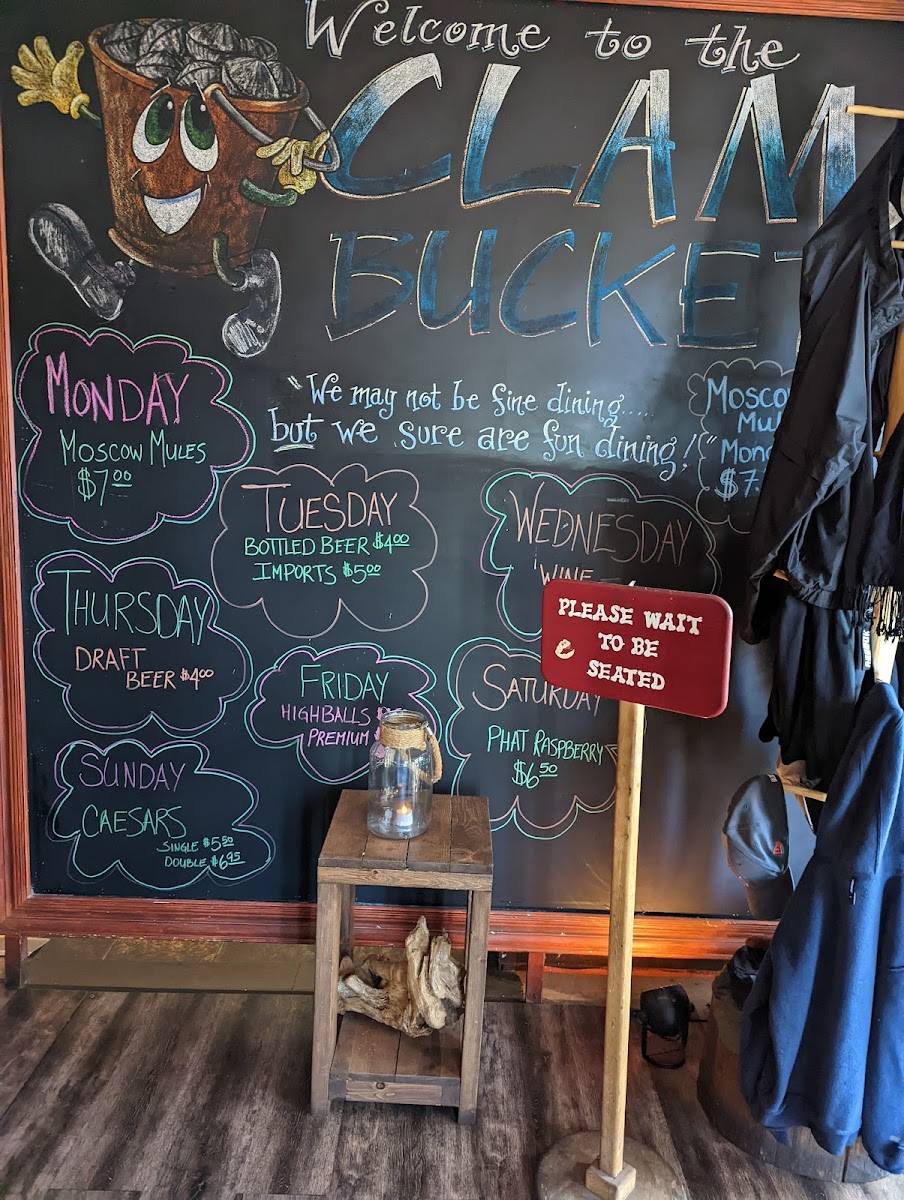 Welcome to the
CLAM
BUCKET
"We may not be fine dining.....
but we sure are fun dining!"
MONDAY
MOSCOW MULES
$7.00
TUESDAY
BOTTLED BEER $4.00
IMPORTS $5.00
WEDNESDAY
WINE
THURSDAY
DRAFT
BEER $4.00
FRIDAY
HIGHBALLS
PREMIUM
SATURDAY
PHAT RASPBERRY
$6.50
SUNDAY
CAESARS
SINGLE $5.50
DOUBLE $6.95
PLEASE WAIT
TO BE
SEATED